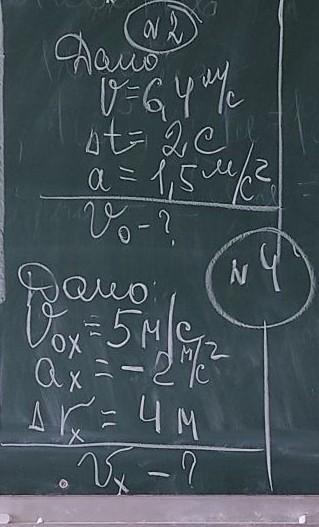 №2
Дано
V=6,4 м/с
Δt = 2 с
a = 1,5 м/с²
V₀ - ?
№4
Дано:
V₀ₓ = 5 м/с
aₓ = -2 м/с²
Δrₓ = 4 м
Vₓ - ?